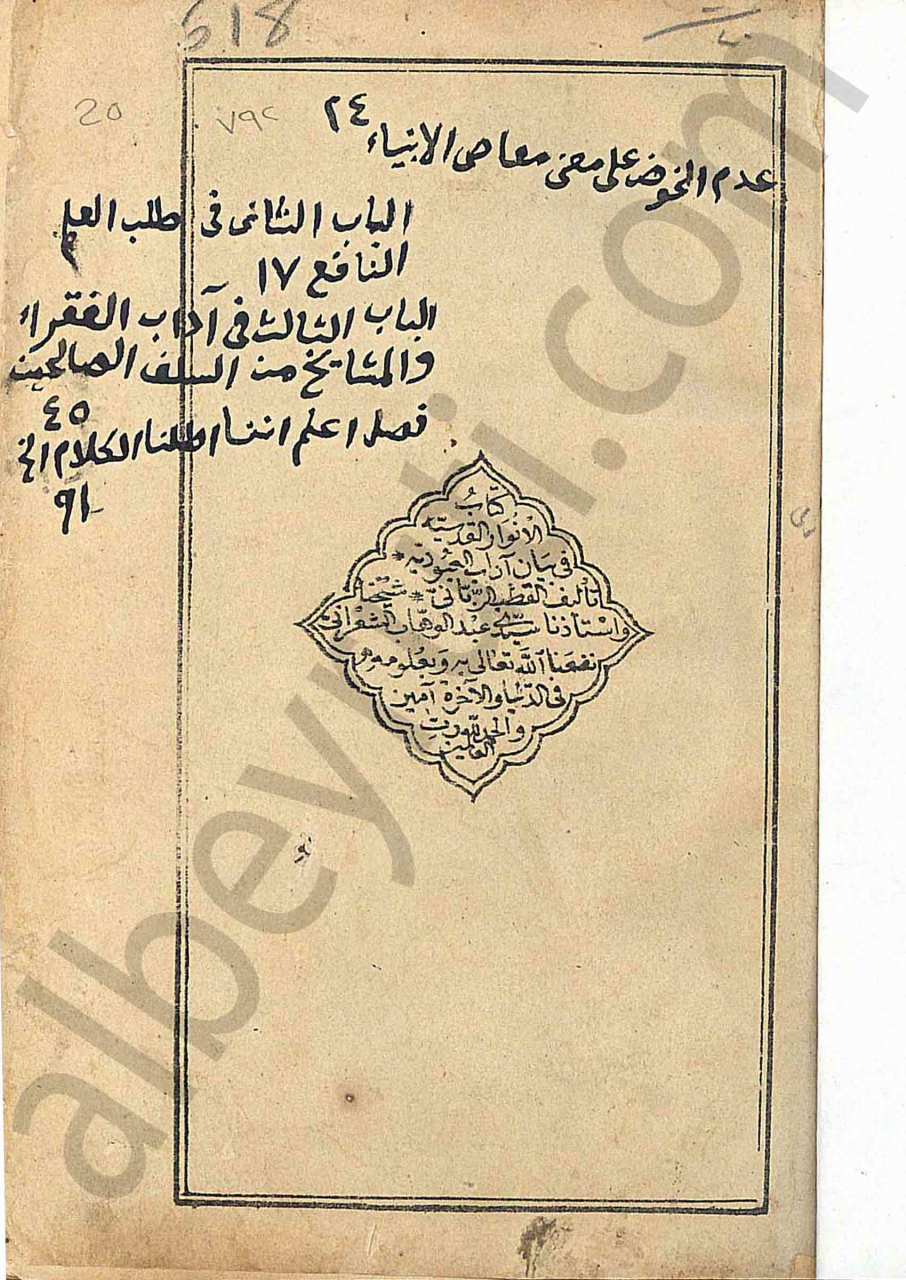 518
20
٧٩٢
عدم الخوض على معنى معاصى الانبياء ٢٤
الباب الثانى فى طلب العلم
النافع ١٧
الباب الثالث فى آداب الفقراء
والمشايخ من السلف الصالحين
٤٥
فصل اعلم اننا اطلنا الكلام الخ
٩١
كتاب
الأنوار القدسية
فى بيان آداب العبودية *
تأليف القطب الربانى * شيخنا
واستاذنا سيدى عبد الوهاب الشعرانى
نفعنا الله تعالى به وبعلومه
فى الدنيا والآخرة آمين
والحمد لله رب
العالمين
albeyyati.com